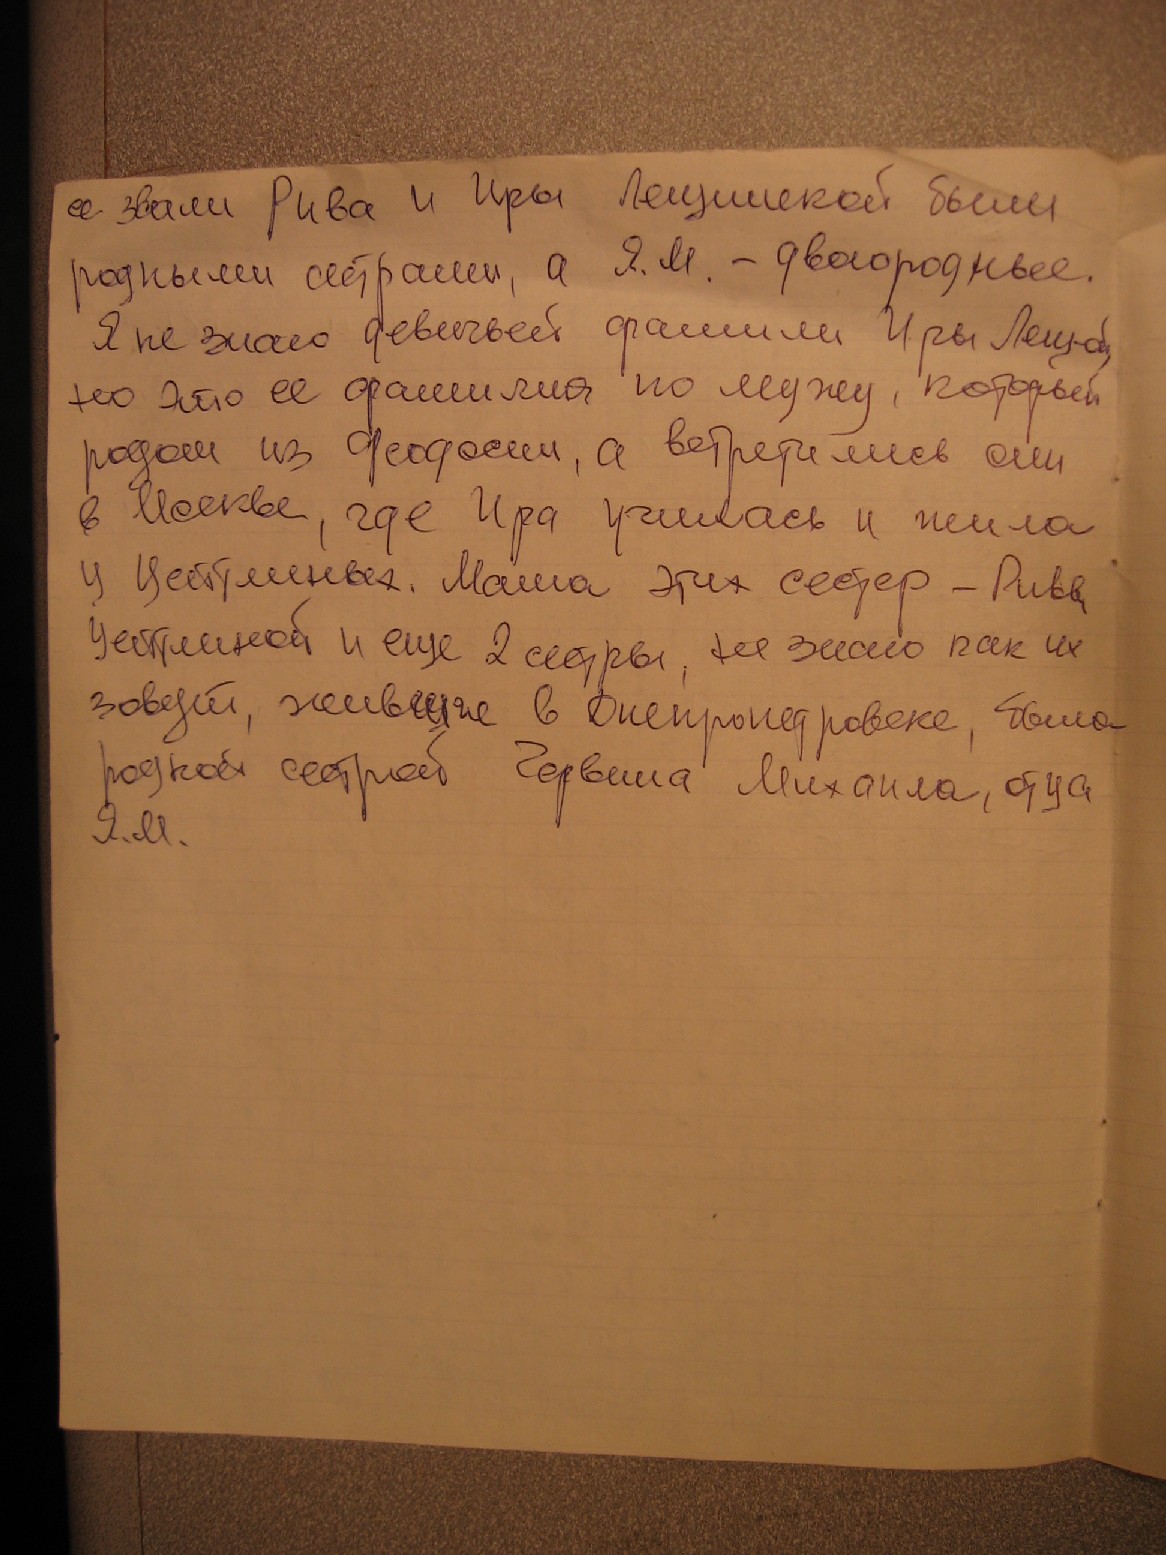 ее звали Рива и Иры Лещинской были
родными сестрами, а Я.М. – двоюродные.
Я не знаю девичьей фамилии Иры Лещ-ой,
но это ее фамилия по мужу, который
родом из Феодосии, а встретились они
в Москве, где Ира училась и жила
у Цетлиных. Мама этих сестер – Ривы
Цетлиной и еще 2 сестры, не знаю как их
зовут, живущие в Днепропетровске, была
родной сестрой Михаила, отца
Я.М.